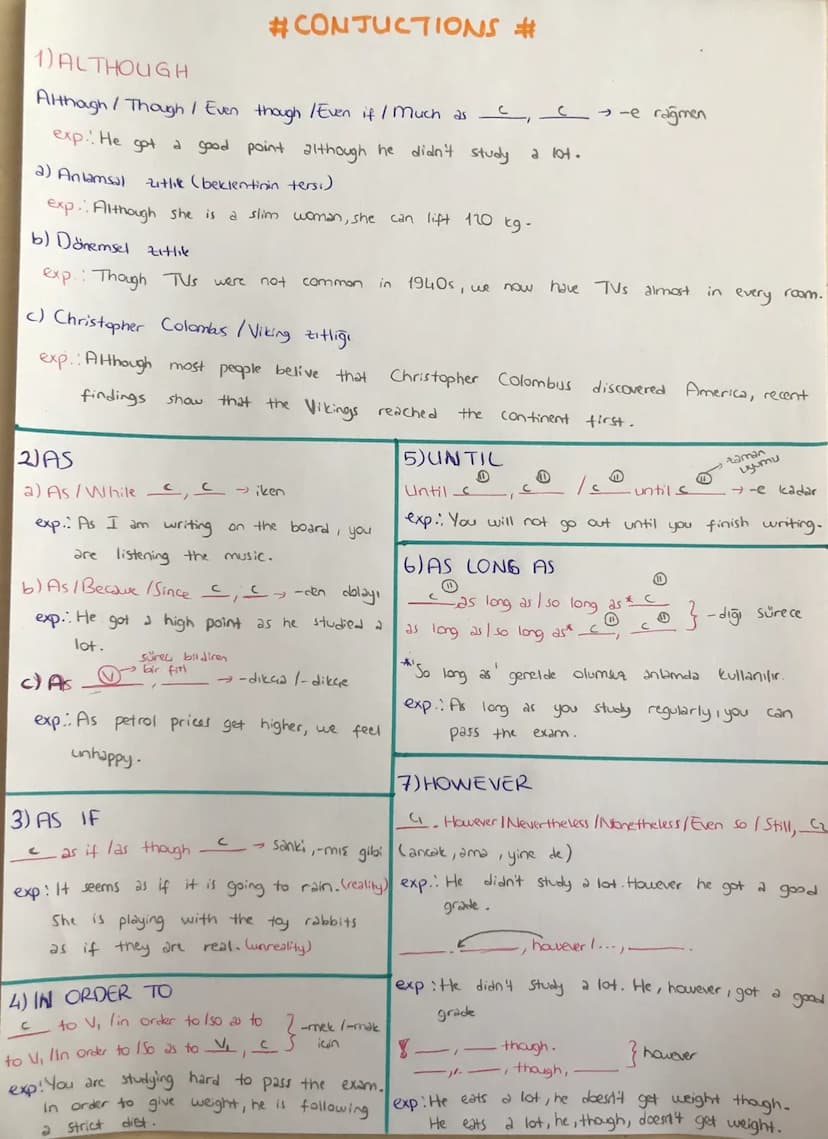 #CONJUCTIONS #
1)ALTHOUGH
Although / Though / Even though /Even if / Much as __c__, __c__ → -e rağmen
exp.: He got a good point although he didn't study a lot.
a) Anlamsal zıtlık (beklentinin tersi)
exp.: Although she is a slim woman, she can lift 120 kg.
b) Dönemsel zıtlık
exp.: Though TVs were not common in 1940s, we now have TVs almost in every room.
c) Christopher Colombus / Viking zıtlığı
exp.: Although most people belive that Christopher Colombus discovered America, recent
findings show that the Vikings reached the continent first.
2)AS
a) As / While __c__, __c__ → iken
exp.: As I am writing on the board, you
are listening the music.
b) As / Because / Since __c__, __c__ → -den dolayı
exp.: He got a high point as he studied a
lot.
süreç bildiren
bir fiil
c) As __V__, ____ → -dıkça / -dikçe
exp.: As petrol prices get higher, we feel
unhappy.
3) AS IF
__c__ as if /as though __c__ → sanki, -mış gibi
exp: It seems as if it is going to rain. (reality)
She is playing with the toy rabbits
as if they are real. (unreality)
4) IN ORDER TO
__c__ to V1 / in order to / so as to } -mek / -mak
to V1 / In order to / So as to __V1__, __c__ } için
exp: You are studying hard to pass the exam.
In order to give weight, he is following
a strict diet.
5) UNTIL
zaman
uyumu
Until __c__, __c__ / __c__ until __c__ → -e kadar
exp.: You will not go out until you finish writing.
6) AS LONG AS
__c__ as long as / so long as* __c__ } -dığı sürece
as long as / so long as* __c__, __c__
*'So long as' genelde olumsuz anlamda kullanılır.
exp.: As long as you study regularly, you can
pass the exam.
7) HOWEVER
__C1__. However / Nevertheless / Nonetheless / Even so / Still, __C2__
(ancak, ama, yine de)
exp.: He didn't study a lot. However he got a good
grade.
____. ____, however / ..., ____.
exp: He didn't study a lot. He, however, got a good
grade
____, ____ though. } however
____, ____, though, ____
exp: He eats a lot, he doesn't get weight though.
He eats a lot, he, though, doesn't get weight.